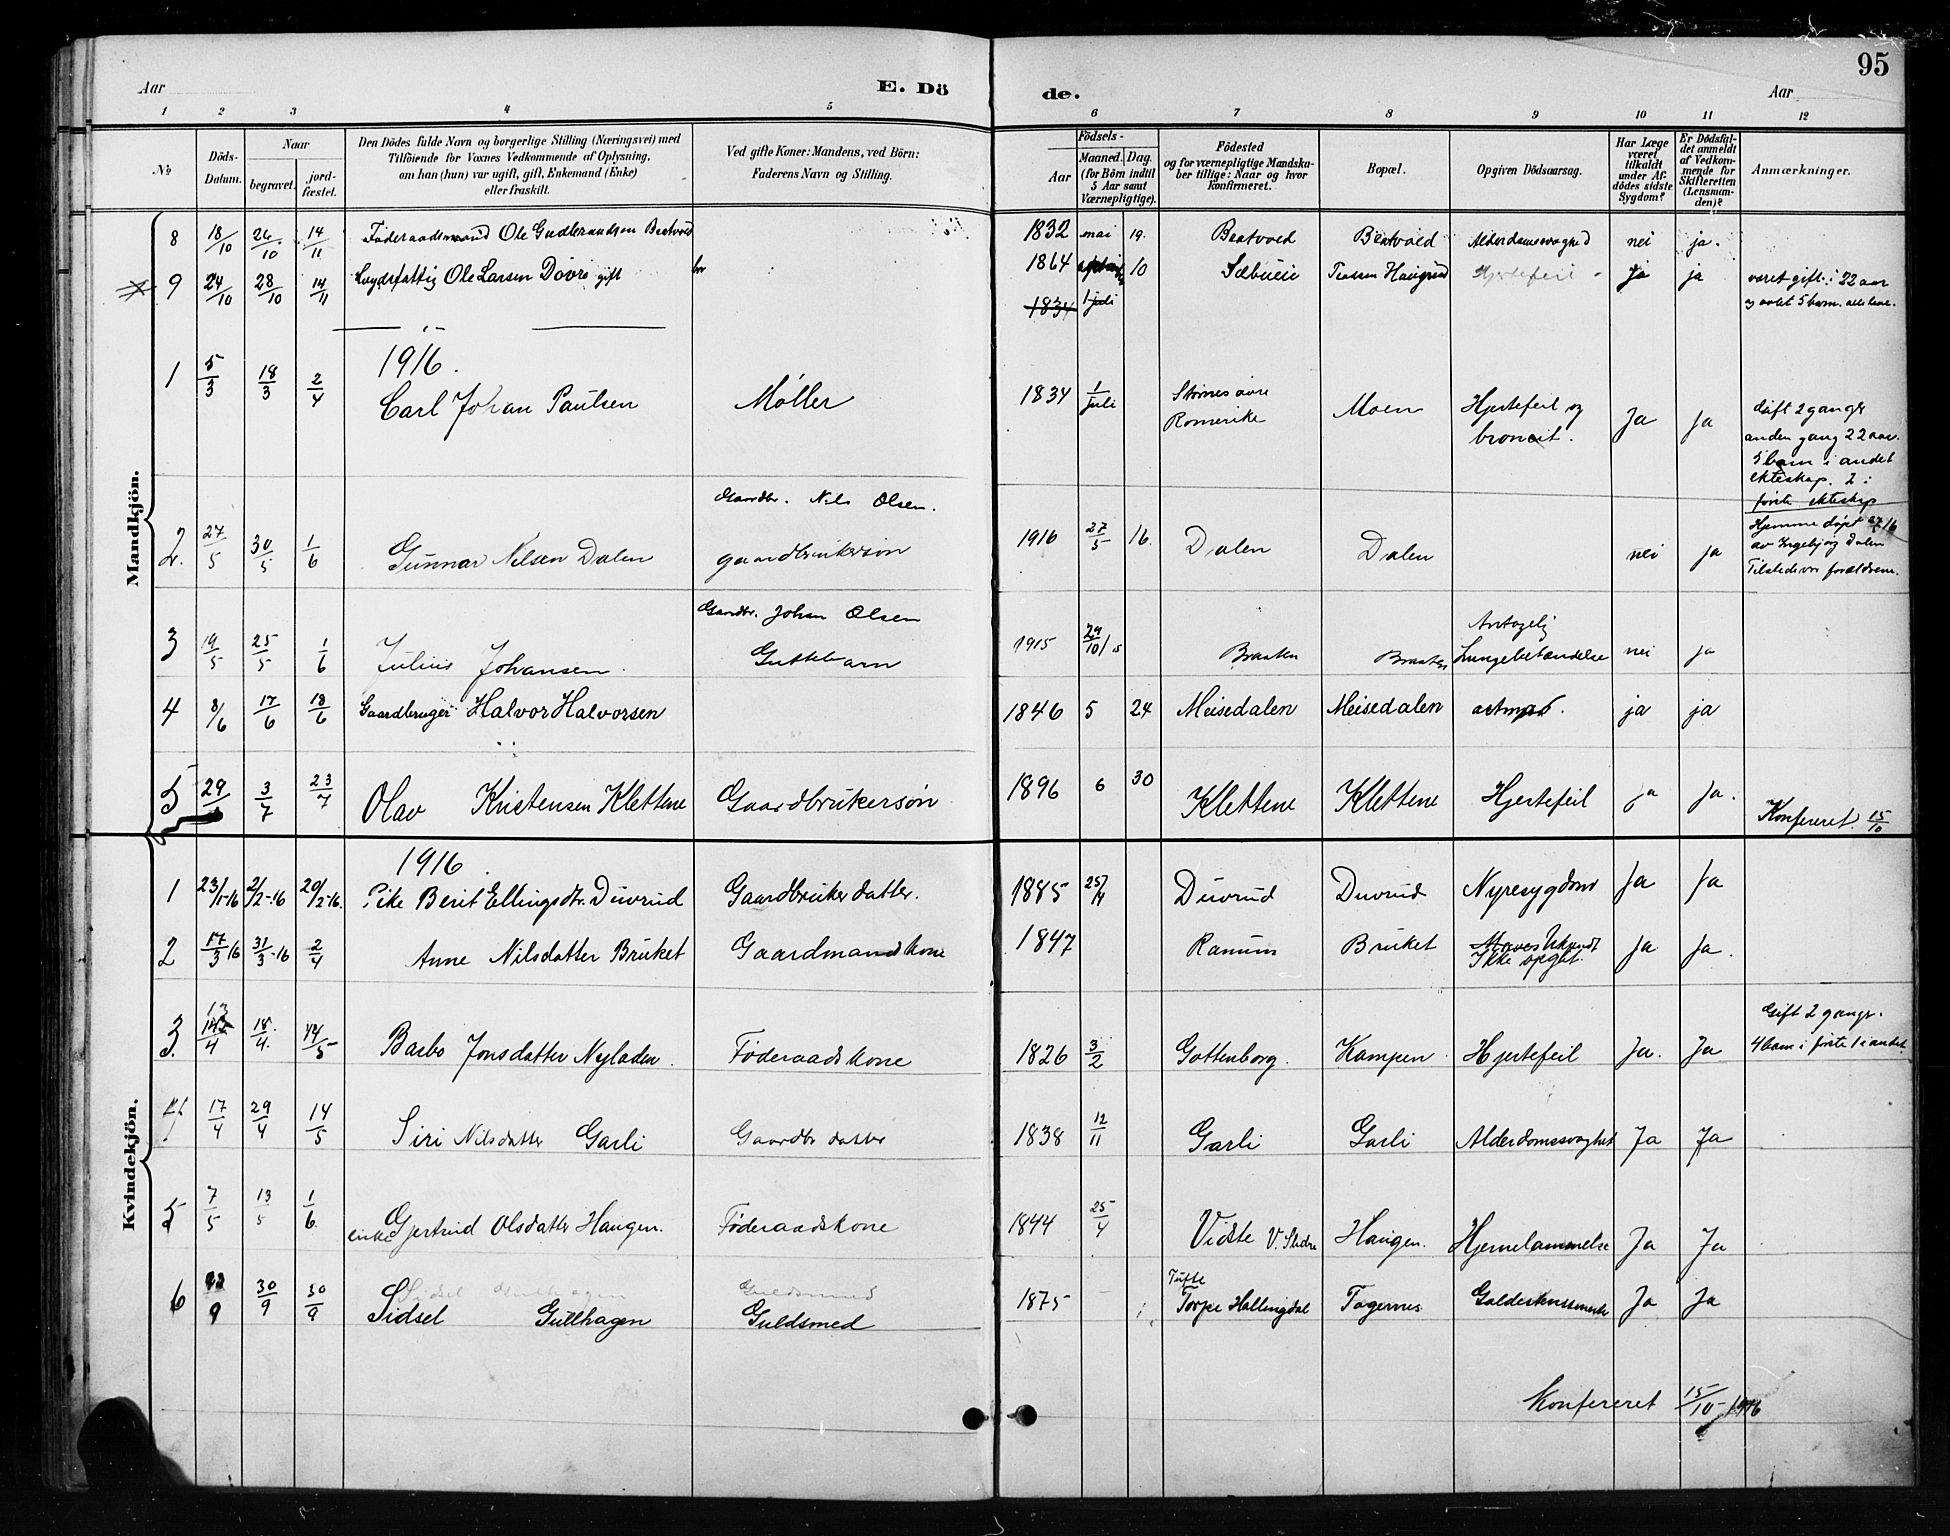 95
Aar
E. Dö
de.
Aar
1 2 3 4 5 6 7 8 9 10 11 12
No
Döds-Datum.
Naar
begravet.
jord-fæstet.
Den Dödes fulde Navn og borgerlige Stilling (Næringsvei) med
Tilföiende for Voxnes Vedkommende af Oplysning,
om han (hun) var ugift, gift, Enkemand (Enke)
eller fraskilt.
Ved gifte Koner: Mandens, ved Börn:
Faderens Navn og Stilling.
Födsels-
Aar
Maaned. Dag.
(for Börn indtil
5 Aar samt
Værnepligtige).
Födested
og for værnepligtige Mandska-
ber tillige: Naar og hvor
konfirmeret.
Bopæl.
Opgiven Dödsaarsag.
Har Læge
været
tilkaldt
under Af-
dödes sidste
Sygdom?
Er Dödsfal-
det anmeldt
af Vedkom-
mende for
Skifteretten
(Lensman-
den)?
Anmærkninger.
Mandkjön.
8 18/10 26/10 14/11 Föderaadsmand Ole Gudbrandsen Beatvold 1832 mai 19. Beatvold Beatvold Alderdomssvaghed nei ja.
9 24/10 28/10 14/11 Lægdsfattig Ole Larsen Dövre gift 1864 10 Sæbueie Haugrud Hjertefeil ja ja været gift i 22 aar
1834 1 juli og avlet 5 barn. alle leve.
1916.
1 5/3 18/3 2/4 Carl Johan Paulsen Møller 1834 1/juli Størnes øvre
Romerike Moen Hjertefeil og
broncit. Ja Ja Gift 2 ganger
anden gang 22 aar.
5 barn i andet
ekteskap. 2 i
første ekteskap
Gaardbr. Nils Olsen.
2. 27/5 30/5 1/6 Gunnar Nilsen Dalen gaardbrukersøn 1916 27/5 16. Dalen Dalen nei ja Hjemme døpt 27/5 16
av Ingebjørg Dalen
Tilstede var forældrene.
Gaardbr. Johan Olsen
3 19/5 25/5 1/6 Julius Johansen. Guttebarn 1915 29/10 15 Braaten Braaten Antagelig
Lungebetændelse nei ja
4 8/6 17/6 18/6 Gaardbruger Halvor Halvorsen 1846 5 24 Meisedalen Meisedalen astma. ja ja
5 29/ 3/7 23/7 Olav Kristensen Klettene Gaardbrukersøn 1896 6 30 Klettene Klettene Hjertefeil ja ja. Konfereret. 15/10
Kvindekjön.
1916
1 23/1-16 2/2-16 20/2-16. Pike Berit Ellingsdtr. Duvrud Gaardbruker datter. 1885 25/4 Duvrud Duvrud Nyresygdom Ja Ja
2 17/3 16 31/3-16 2/4 Anne Nilsdatter Bruket Gaardmandskone 1847 Ranum Bruket Ukjendt
Ikke opgit. Ja Ja.
3. 13/4 18/4. 14/5 Barbo Jonsdatter Nyladen. Føderaadskone 1826 3/2 Gottenborg. Kampen Hjertefeil Ja. Ja Gift 2 gange.
4 barn i første 1 i andet.
4 17/4 29/4 14/5 Siri Nilsdatter Garli Gaardbr datter 1838 12/11 Garli Garli Alderdomssvaghet Ja Ja
5 7/5 13/5 1/6. enke Gjertrud Olsdatter Haugen. Føderaadskone 1844 25/4 Vidste V. Slidre Haugen. Hjernelammelse Ja Ja
6 /9 30/9 30/9 Sidsel Gullhagen Guldsmed 1875 Tufte
Torpe Hallingdal Fagernes Ja Ja
Konfereret 15/10-1916